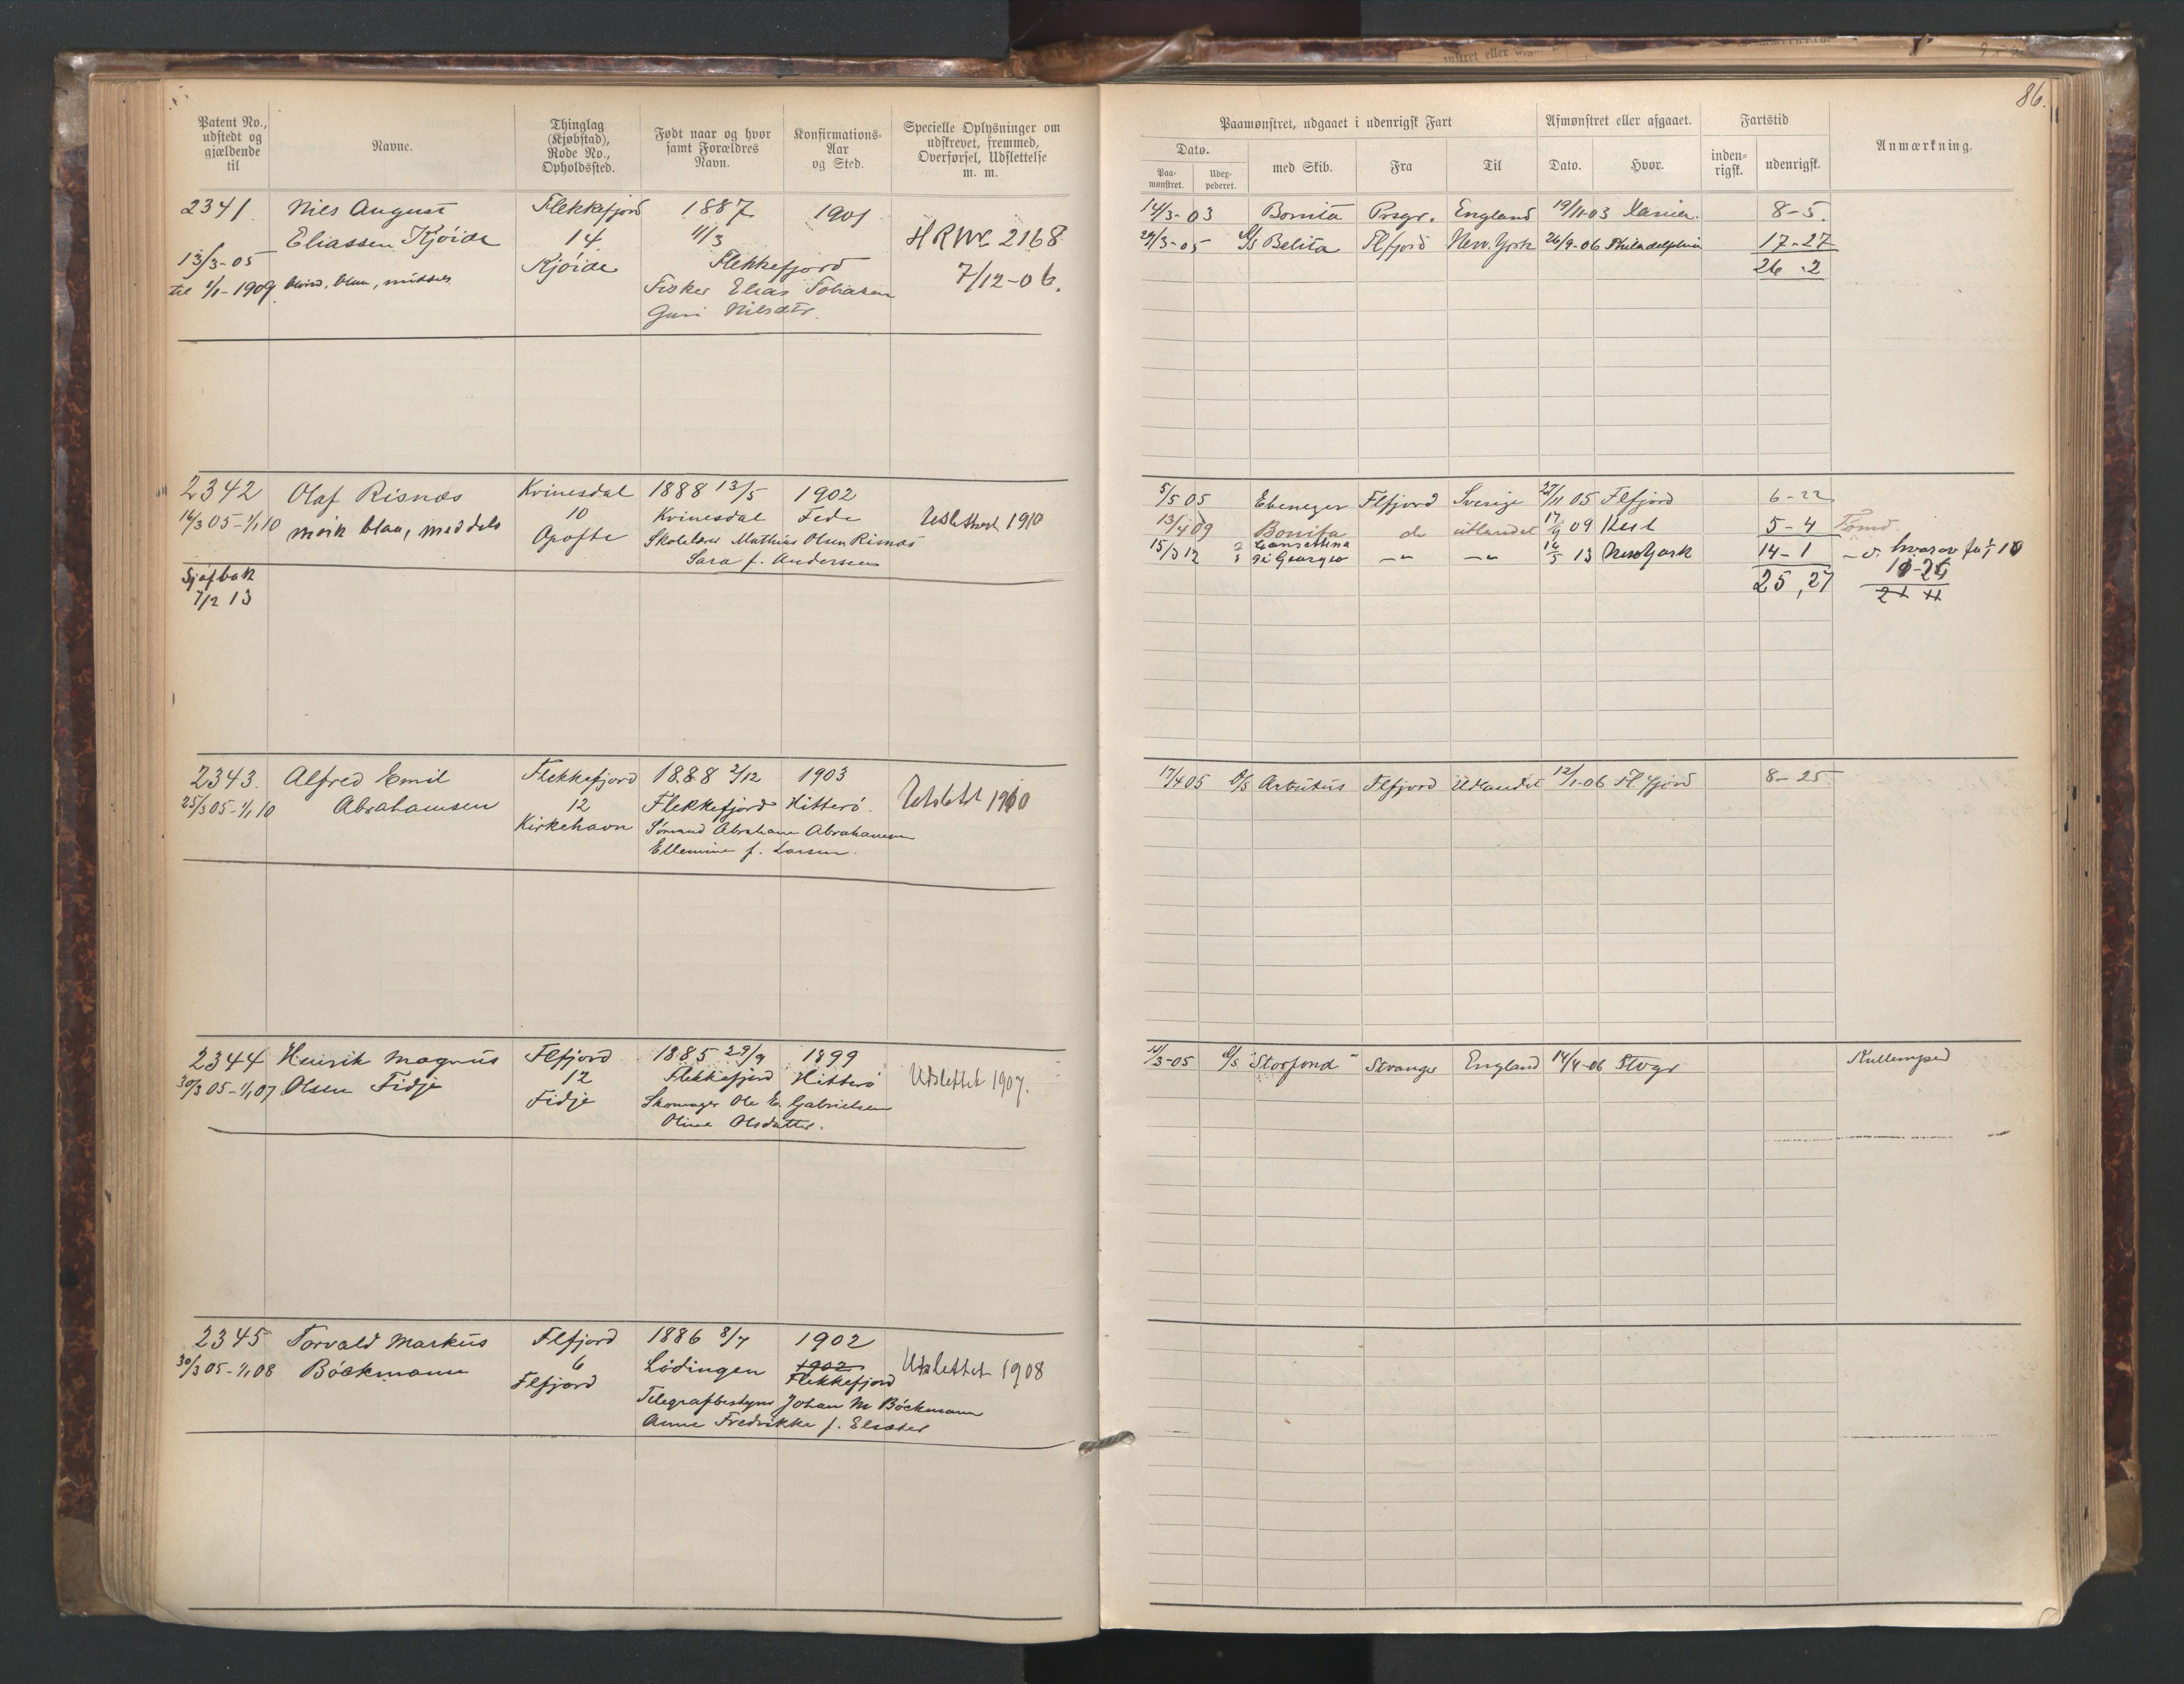 86.
Patent No., udstedt og gjældende til
Navne.
Thinglag (Kjøbstad), Rode No., Opholdssted.
Født naar og hvor samt Forældres Navn.
Konfirmations-Aar og Sted.
Specielle Oplysninger om udskrevet, fremmed, Overførsel, Udslettelse m. m.
Paamønstret, udgaaet i udenrigsk Fart
Afmønstret eller afgaaet.
Fartstid
Anmærkning.
Dato.
Paa-mønstret.
Udex-pederet.
med Skib.
Fra
Til
Dato.
Hvor.
inden-rigsk.
udenrigsk.
2341. Niels August Flekkefjord 1887 1901
Eliassen Kjøide 14. 11/3 HRWL 2168
13/3-05 Kjøide Flekkefjord 7/12-06.
til 1/1-1909 blond, blaa, middels Fisker Elias Tobiasen
Guri Nilsdtr.
14/3-03 Bonita Prsgr. England 19/11-03 8-5.
29/3-05 S/S Belita Flfjord New. York 26/9-06 Philadelphia 17-27
26-2
2342 Olaf Risnæs Kvinesdal 1888 13/5 1902
16/3 05-1/1 10 mørk blaa, meddels 10 Kvinesdal Fede Udslettet 1910
Apofte Skolelærer Mathias Olsen Risnæs
Sara f. Andersen
Sjøfbok
7/2 13
5/5 05 Ebeneger Flfjord Sverige 27/11 05 Flfjord 6-22
13/4 09 Bonita do utlandet 17/9 09 5-4 Tømd.
15/3 12 Georgio -"- -"- 16/5 13 New York 14-1 hvorav før 1/1 10
25,27
2343. Alfred Emil Flekkefjord 1888 2/12 1903
25/3 05-1/1 10 Abrahamsen 12 Flekkefjord Hitterø. Udslettet 1910
Kirkehavn Sømand Abraham Abrahamsen
Ellemine f. Larsen.
17/4 05 D/S Arbutus Flfjord Udlandet 12/1-06 Fl.fjord 8-25
2344 Henrik Magnus Flfjord 1885 29/9 1899
30/3 05-1/1 07 Olsen Fidje 12 Flekkefjord Hitterø Udslettet 1907.
Fidje Skomager Ole E. Gabrielsen
Oline Olsdatter.
D/S "Storfond" Stvanger England 14/4-06 Stvgr Kullemped
2345 Torvald Markus Flfjord 1886 8/7 1902
30/3 05-1/1 08 Böckmann 6 Lödingen 1902 Udslettet 1908
Flfjord Flekkefjord
Telegrafbestyrer Johan M Böckmann
Anne Fredrikke f. Elsæter